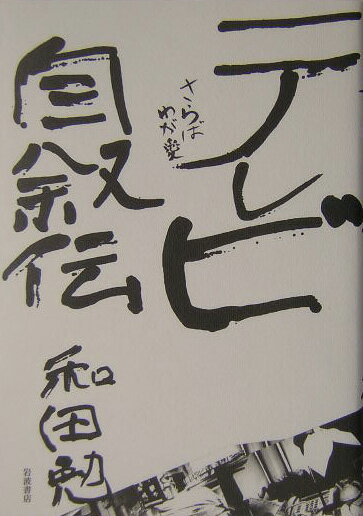 テレビ
自叙伝
さらば
わが愛
和田勉
岩波書店